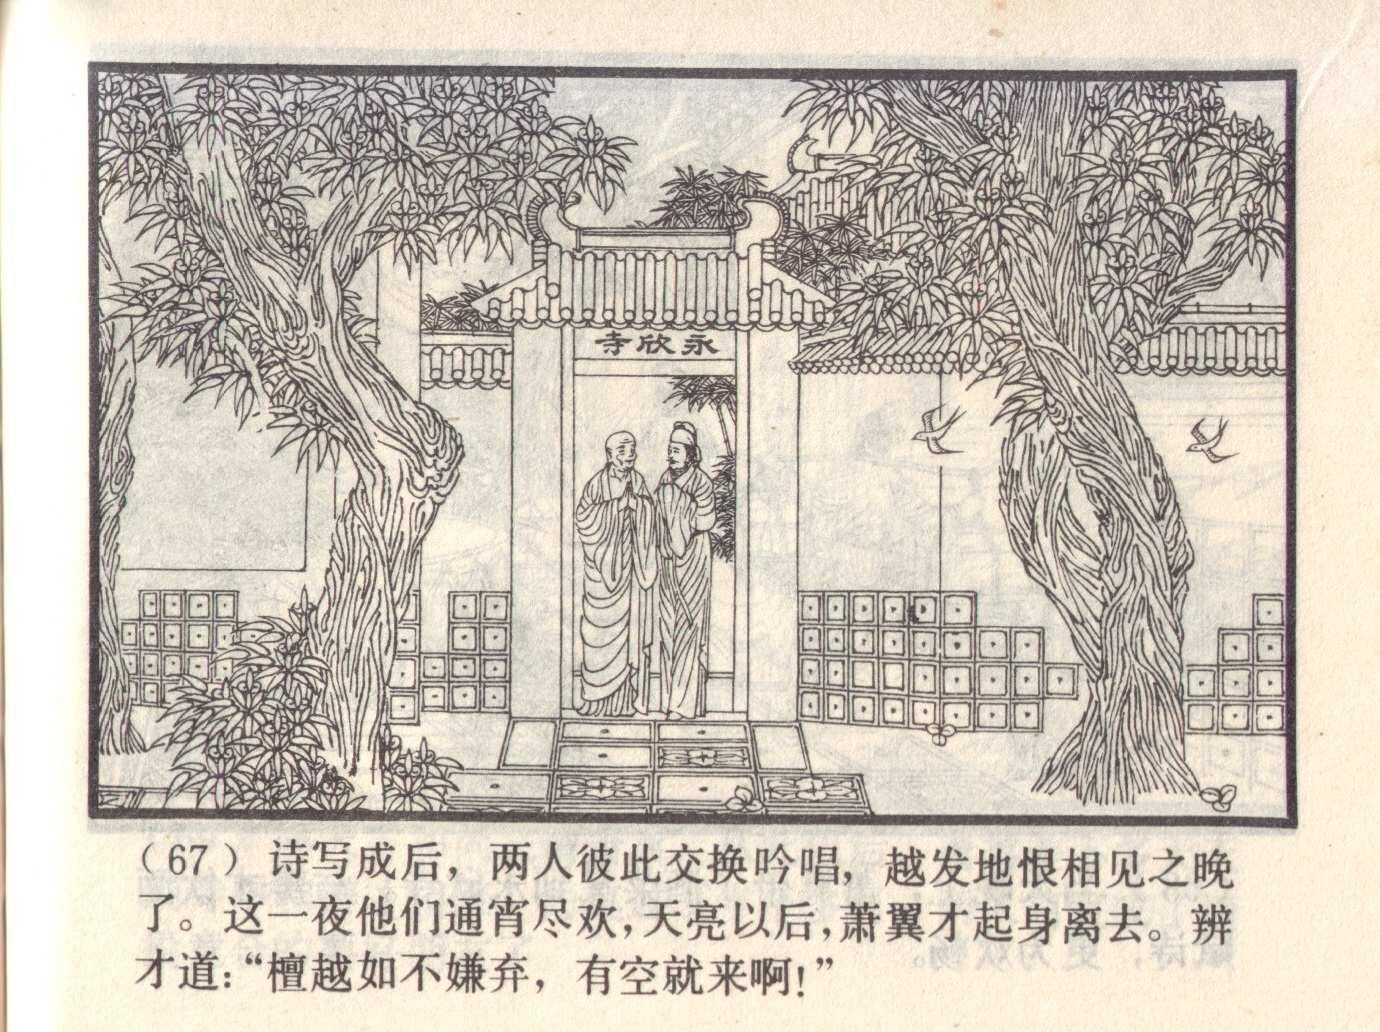 寺欣永
（67）诗写成后，两人彼此交换吟唱，越发地恨相见之晚
了。这一夜他们通宵尽欢，天亮以后，萧翼才起身离去。辨
才道：“檀越如不嫌弃，有空就来啊！”